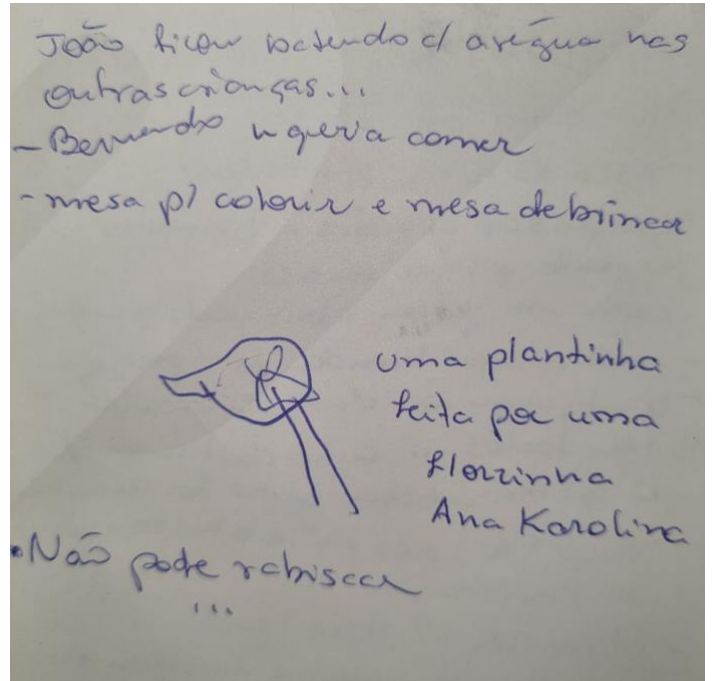 João ficou batendo c/ a régua nas
outras crianças...
- Bernardo ñ queria comer
- mesa p/ colorir e mesa de brincar
uma plantinha
feita por uma
florzinha
Ana Karolina
• Não pode rabiscar
...